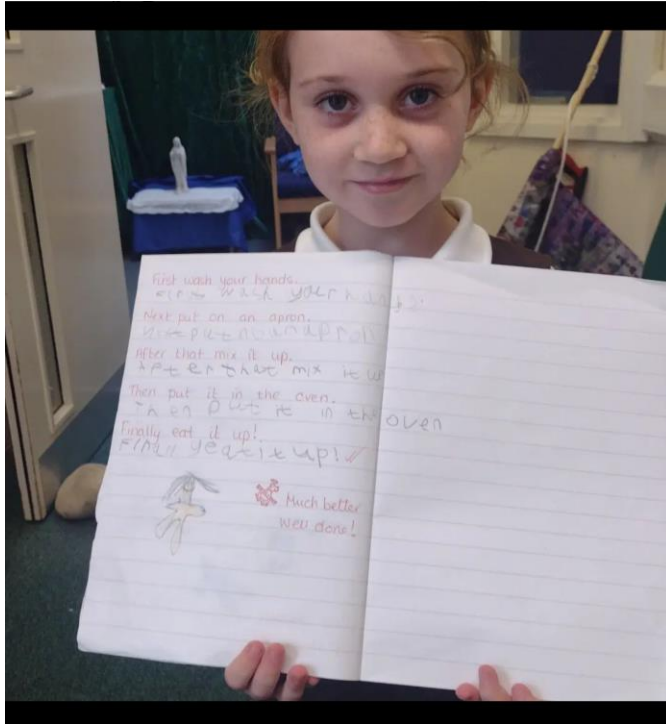 First wash your hands.
First wash your hands.
Next put on an apron.
Next put on an apron
After that mix it up.
After that mix it up
Then put it in the oven.
Then put it in the oven
Finally eat it up!
Finally eat it up!
Much better
well done!